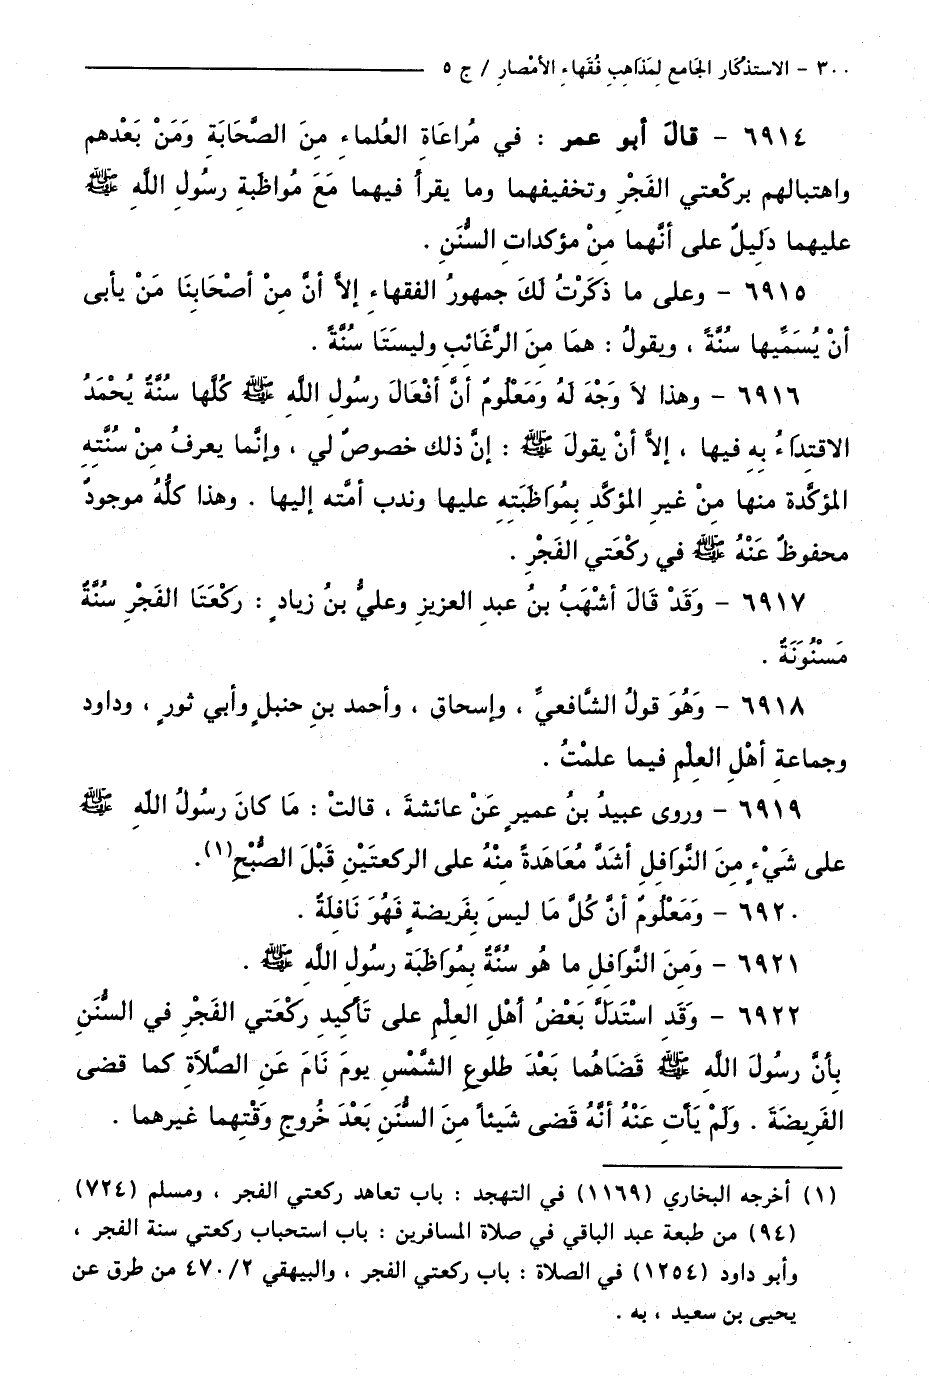 ٣٠٠ - الاستذكار الجامع لِمَذَاهِبِ فُقَهاءِ الأمْصارِ / ج ٥
٦٩١٤ - قالَ أبو عمر : في مُراعَاةِ العُلماءِ مِنَ الصَّحَابَةِ وَمَنْ بَعْدهم
واهتبالهم بركْعتي الفَجْرِ وتخفيفهما وما يقرأ فيهما مَعَ مُواظَبةِ رسُولِ اللَّهِ ﷺ
عليهما دَلِيلٌ على أنَّهما مِنْ مؤكداتِ السُّنَنِ .
٦٩١٥ - وعلى ما ذكَرْتُ لكَ جمهورُ الفقهاءِ إلاَّ أنَّ مِنْ أصْحَابِنَا مَنْ يأبى
أنْ يُسَمِّيها سُنَّةً ، ويقولُ : همَا مِنَ الرَّغَائِبِ وليستَا سُنَّةً .
٦٩١٦ - وهذا لاَ وَجْهَ لهُ وَمَعْلُومٌ أنَّ أفْعَالَ رسُولِ اللَّهِ ﷺ كُلَّها سُنَّةٌ يُحْمَدُ
الاقتِداءُ بِهِ فيها ، إلاَّ أنْ يقولَ ﷺ : إنَّ ذلك خصوصٌ لي ، وإنَّما يعرفُ مِنْ سُنَّتِهِ
المؤكَّدة منها مِنْ غيرِ المؤكَّدِ بِمُواظَبَتِهِ عليها وندبِ أمَّته إليها . وهذا كلُّهُ موجودٌ
محفوظٌ عَنْهُ ﷺ في ركْعَتي الفَجْرِ .
٦٩١٧ - وَقَدْ قَالَ أشْهَبُ بنُ عبدِ العزيزِ وعليُّ بنُ زيادٍ : ركْعَتَا الفَجْرِ سُنَّةٌ
مَسْنُونَةٌ .
٦٩١٨ - وَهُوَ قولُ الشَّافعيِّ ، وإسحاق ، وأحمد بنِ حنبلٍ وأبي ثورٍ ، وداود
وجماعةِ أهْلِ العِلْمِ فيما علمْتُ .
٦٩١٩ - وروى عبيدُ بنُ عميرٍ عَنْ عائشةَ ، قالتْ : مَا كانَ رسُولُ اللَّهِ ﷺ
على شَيْءٍ مِنَ النَّوافِلِ أشَدَّ مُعَاهَدةً مِنْهُ على الركعتَيْنِ قَبْلَ الصُّبْحِ(١).
٦٩٢٠ - وَمَعْلُومٌ أنَّ كُلَّ مَا ليسَ بِفَريضةٍ فَهُوَ نَافِلَةٌ .
٦٩٢١ - وَمِنَ النَّوافلِ ما هُو سُنَّةٌ بِمُواَظَبَة رسُولِ اللَّهِ ﷺ .
٦٩٢٢ - وَقَدِ اسْتَدَلَّ بَعْضُ أهْلِ العِلْمِ على تَأكِيدِ ركْعَتي الفَجْرِ في السُّنَنِ
بأنَّ رسُولَ اللَّهِ ﷺ قَضَاهُما بَعْدَ طلوعِ الشَّمْسِ يومَ نَامَ عَنِ الصَّلاَةِ كما قضى
الفَرِيضَةَ . ولَمْ يَأتِ عَنْهُ أنَّهُ قَضى شَيئاً مِنَ السُّنَنِ بَعْدَ خُروجِ وَقْتِهما غيرهما .
(١) أخرجه البخاري (١١٦٩) في التهجد : باب تعاهد ركعتي الفجر ، ومسلم (٧٢٤)
(٩٤) من طبعة عبد الباقي في صلاة المسافرين : باب استحباب ركعتي سنة الفجر ،
وأبو داود (١٢٥٤) في الصلاة : باب ركعتي الفجر ، والبيهقي ٤٧٠/٢ من طرق عن
يحيى بن سعيد ، به .